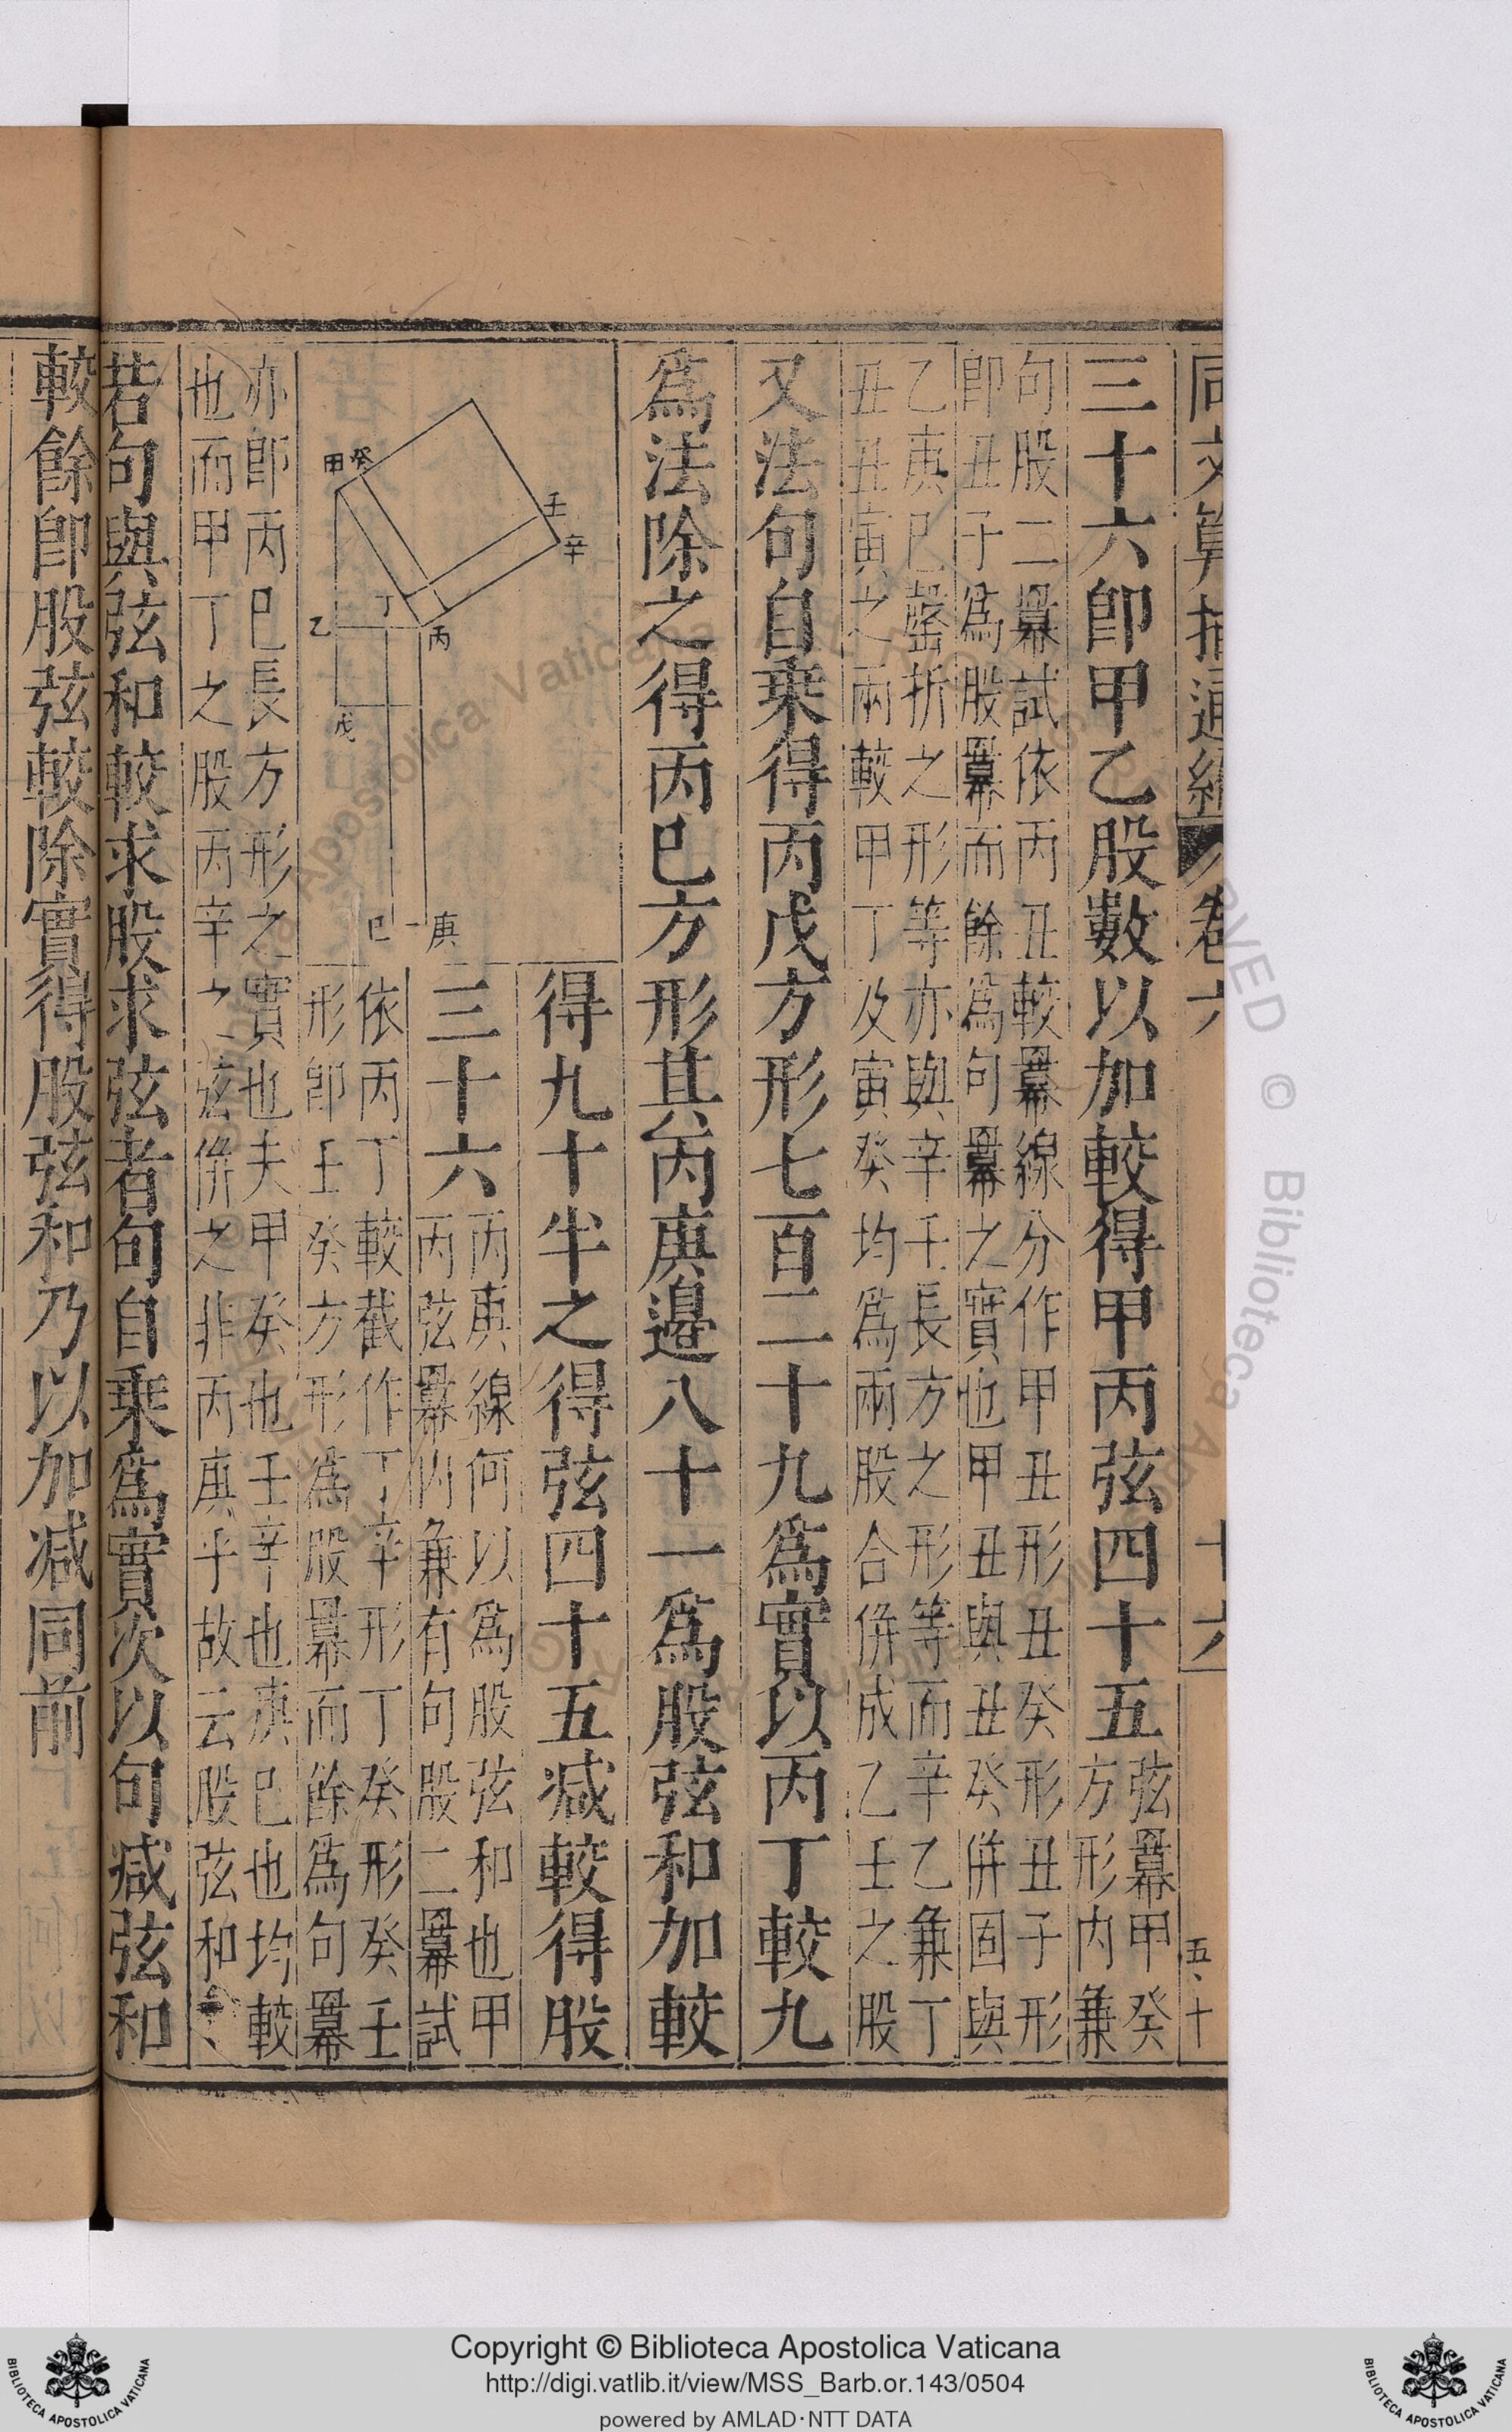 同文算指通編 卷六 十六 五、十
三十六卽甲乙股數以加較得甲丙弦四十五
弦羃甲癸
方形內兼
句股二羃試依丙丑較羃線分作甲丑形丑癸形丑子形
卽丑子爲股羃而餘爲句羃之實也甲丑與丑癸併固與
乙庚巳罄折之形等亦與辛壬長方之形等而辛乙兼丁
丑丑寅之兩較甲丁及寅癸均爲兩股合併成乙壬之股
又法句自乘得丙戊方形七百二十九爲實以丙丁較九
爲法除之得丙巳方形其丙庚邊八十一爲股弦和加較
得九十半之得弦四十五減較得股
三十六
丙庚線何以爲股弦和也甲
丙弦羃內兼有句股二羃試
依丙丁較截作丁辛形丁癸形癸壬
形卽壬癸方形爲股羃而餘爲句羃
甲 癸 壬 辛 丁 丙 乙 戊 巳 庚
亦卽丙巳長方形之實也夫甲癸也壬辛也庚巳也均較
也而甲丁之股丙辛之弦併之非丙庚乎故云股弦和
若句與弦和較求股求弦者句自乘爲實次以句減弦和
較餘卽股弦較除實得股弦和乃以加減同前
Copyright © Biblioteca Apostolica Vaticana
http://digi.vatlib.it/view/MSS_Barb.or.143/0504
powered by AMLAD·NTT DATA
BIBLIOTECA APOSTOLICA VATICANA
BIBLIOTECA APOSTOLICA VATICANA